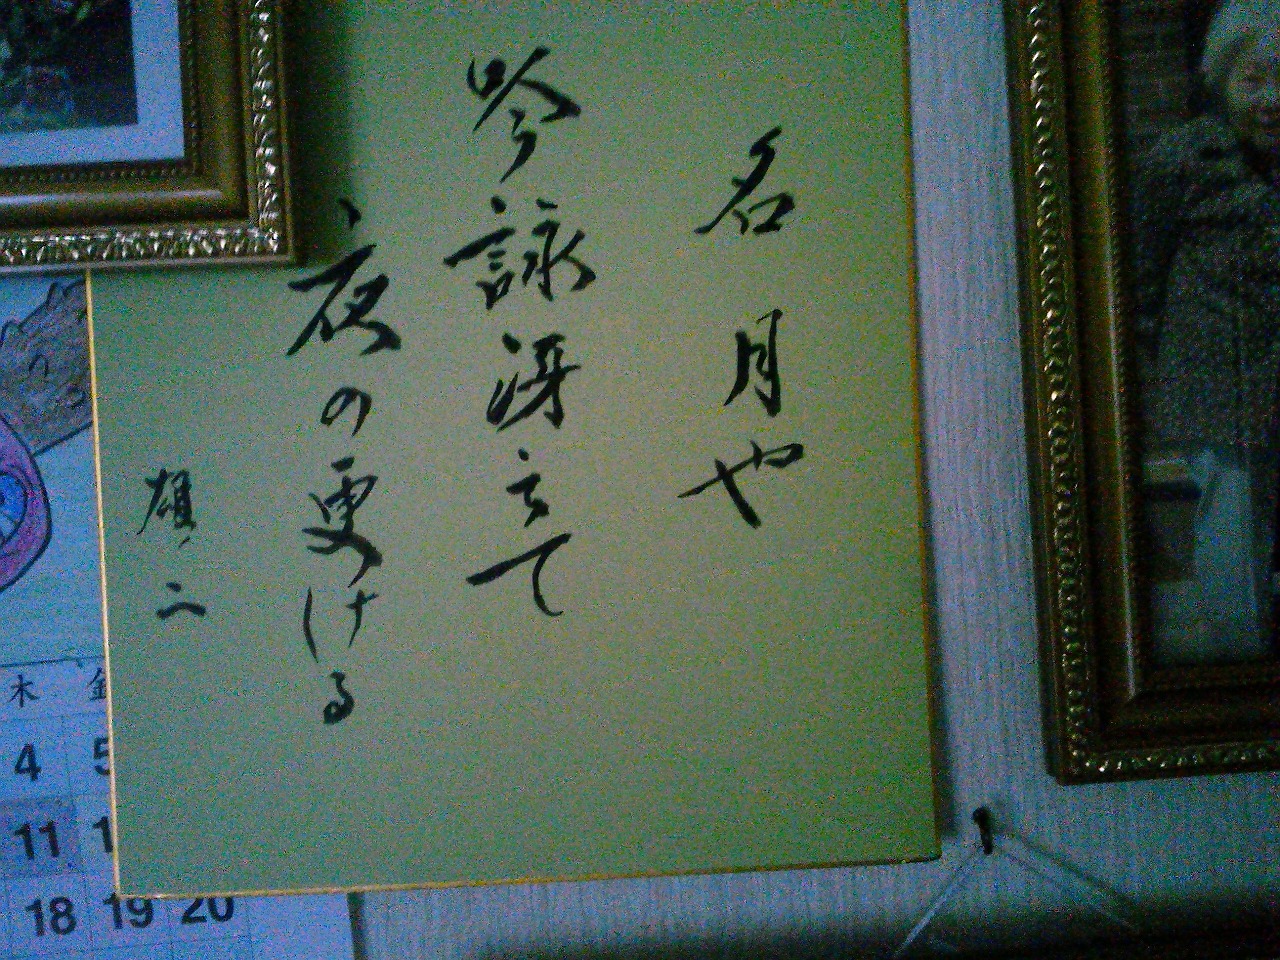 名月や
吟詠冴えて
夜の更ける
雄二
木 金
4 5
11
18 19 20